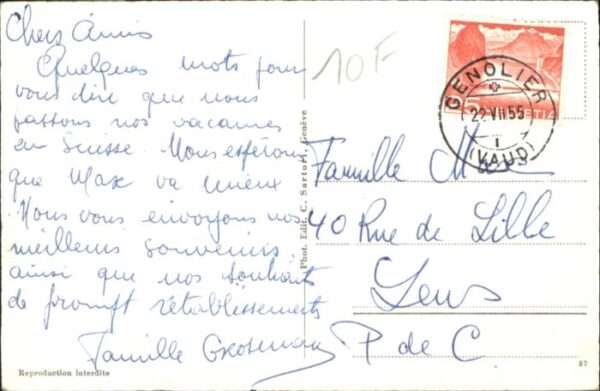 Chers Amis
Quelques mots pour
vous dire que nous
passons nos vacances
en Suisse. Nous espérons
que Max va mieux
Nous vous envoyons nos
meilleurs souvenirs
ainsi que nos souhaits
de prompt rétablissements
Famille
Reproduction interdite
Phot. Edit. C. Sartori, Genève
10F
25
HELVETIA
GENOLIER
22 VII 55
1
(VAUD)
Famille
40 Rue de Lille
Lens
P de C
87